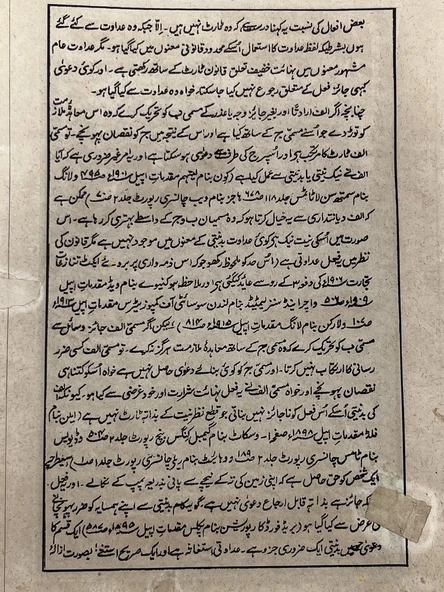 بعض افعال کی نسبت یہ کہنا درست ہے کہ وہ ٹارٹ نہیں ہیں۔ اِلّا جبکہ وہ عداوت سے کئے گئے
ہوں بشرطیکہ لفظ عداوت کا استعمال اُسکے محدود قانونی معنوں میں کیا گیا ہو۔ مگر عداوت عام
مشہور معنوں میں نہائت خفیف تعلق قانون ٹارٹ کے ساتھ رکھتی ہے۔ اور کوئی دعویٰ
کبھی جائز فعل کے متعلق رجوع نہیں کیا جا سکتا خواہ وہ عداوت سے کیا گیا ہو۔
چنانچہ اگر الف ارادتاً اور بغیر جائز وجہ یا عذر کے مسمی ب کو تحریک کرے کہ وہ اس معاہدہ ملازمت
کو توڑ دے جو اُسنے مسمی ج کے ساتھ کیا ہے اور اس کے نتیجہ میں ج کو نقصان پہونچے۔ تو مسمی
الف ٹارٹ کا مرتکب ہوا اور اسپر ج کی طرف سے دعویٰ ہو سکتا ہے اور یہ امر غیر ضروری ہے کہ آیا
الف نے نیک نیتی یا بدنیتی سے عمل کیا ہے (کوئن بنام لیتھم مقدمات اپیل ۱۹۰۱ء ۴۹۵ ولائنگ
بنام سمتھوسن لاٹائمس جلد ۱۱۸ ۶۷۸ ہاجز بنام ویب چانسری رپورٹ جلد ۲ ۷) ممکن ہے
کہ الف دیانتداری سے یہ خیال کرتا ہو کہ وہ مسمیان ب و ج کے واسطے بہتری کر رہا ہے۔ اس
صورت میں اُسکی نیت نیک ہو کوئی عداوت بدنیتی کے معنوں میں موجود نہیں ہے مگر قانون کی
نظر میں یہ فعل عداوتی ہے (اس حد کو ملحوظ رکھو جو کہ اس ذمہ داری پر بروئے ایکٹ تنازعات
تجارت ۱۹۰۶ء کی دفعہ ۳ کے رو سے عائد کیگئی ہے) اور ملاحظہ ہو کنیوے بنام ویڈ مقدمات اپیل
۱۹۰۹ء ۵۰۶ ویجر اینڈ سنز لیمیٹیڈ بنام لندن سوسائٹی آف کمپوزیٹرس مقدمات اپیل ۱۹۱۳ء
۱۰۷ ولارکن بنام لانگ مقدمات اپیل ۱۹۱۵ء ۸۱۴) لیکن اگر مسمی الف جائز وسائل سے
مسمی ب کو تحریک کرے کہ وہ مسمی ج کے ساتھ معاہدۂ ملازمت ہرگز نہ کرے۔ تو مسمی الف کسی ضرر
رسانی کا ارتکاب نہیں کرتا۔ اور مسمی ج کو کوئی بنائے دعویٰ حاصل نہیں ہے خواہ اُسکو کتنا ہی
نقصان پہونچے اور خواہ مسمی الف نے یہ فعل نہائت شرارت اور خود غرضی سے کیا ہو۔ کیونکہ الف
کی بدنیتی اُسکے اُس فعل کو ناجائز نہیں بناتی جو قطع نظر نیت کے بذاتہ ٹارٹ نہیں ہے (الین بنام
فلڈ مقدمات اپیل ۱۸۹۸ء صفحہ ۱۔ وسکاٹ بنام کیمبل کنگس بنچ رپورٹ جلد ۲ ۵۰۴ وڈیویس
بنام ٹامس چانسری رپورٹ جلد ۲ ۱۸۹ و وائیٹ بنام ریلے چانسری رپورٹ جلد ۱ ۱) اسیطرح
ایک شخص کو حق حاصل ہے کہ اپنی زمین کی تہ کے نیچے سے پانی بذریعہ پمپ کے نکالے۔ اور یہ فعل
کہ جائز ہے بذاتہ قابل ارجاع دعویٰ نہیں ہے۔ گو یہ کام بدنیتی سے اپنے ہمسایہ کو ضرر پہونچانے
کی غرض سے کیا گیا ہو (بریڈفورڈ کارپوریشن بنام پکلس مقدمات اپیل ۱۸۹۵ء ۵۸۷) ایک قسم کا
دعویٰ جسمیں بدنیتی ایک ضروری جزو ہے۔ عداوتی استغاثہ ہے اور ایک صریح استثنےٰ بصورت ازالہ